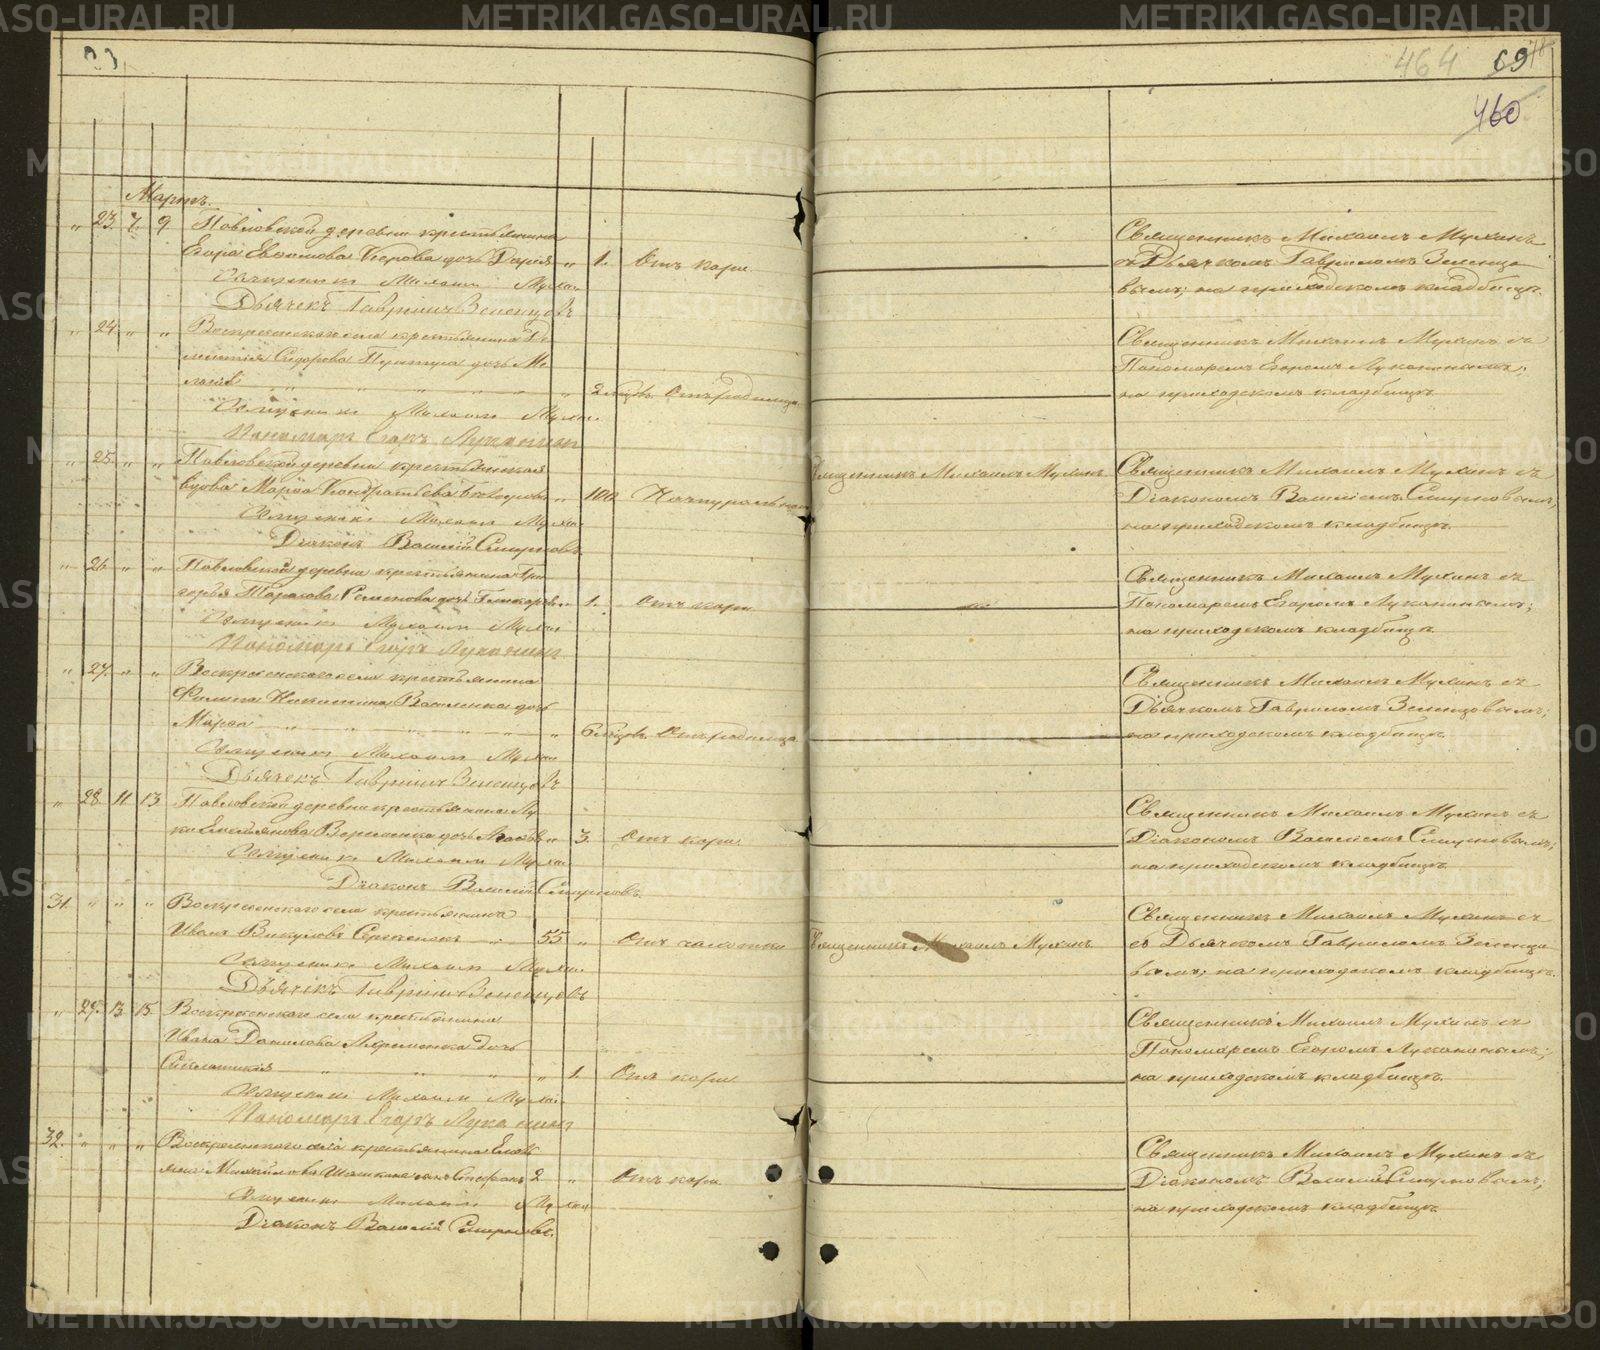 464 69
460
Мартъ.
„ 23. 7. 9 Павловской деревни крестьянина
Егора Евфимова дочь Дарья „ 1. Отъ кори
Священникъ Михаилъ Мухинъ
Дьячекъ Гавріилъ Зеленцовъ
Священникъ Михаилъ Мухинъ
съ Дьячкомъ Гавріиломъ Зеленцо-
вымъ; на приходскомъ кладбищѣ.
„ 24. „ „ Воскресенскаго села крестьянина
Сидорова дочь Ме-
ланія „ „ „ „ 2 мѣс. Отъ родимца
Священникъ Михаилъ Мухинъ
Пономарь Егоръ Луканинъ
Священникъ Михаилъ Мухинъ съ
Пономаремъ Егоромъ Луканинымъ;
на приходскомъ кладбищѣ.
„ 25. „ „ Павловской деревни крестьянская
вдова Марѳа Кондратьева „ 100 Натуральною
Священникъ Михаилъ Мухинъ
Діаконъ Василій Смирновъ
Священникъ Михаилъ Мухинъ
Священникъ Михаилъ Мухинъ съ
Діакономъ Василіемъ Смирновымъ;
на приходскомъ кладбищѣ.
„ 26 „ „ Павловской деревни крестьянина Гри-
горья Тарасова дочь „ 1. Отъ кори
Священникъ Михаилъ Мухинъ
Пономарь Егоръ Луканинъ
Священникъ Михаилъ Мухинъ съ
Пономаремъ Егоромъ Луканинымъ;
на приходскомъ кладбищѣ
„ 27. „ „ Воскресенскаго села крестьянина
Филипа Никитина Василенка дочь
Марѳа „ „ „ „ 6 мѣс. Отъ родимца
Священникъ Михаилъ Мухинъ
Дьячекъ Гавріилъ Зеленцовъ
Священникъ Михаилъ Мухинъ съ
Дьячкомъ Гавріиломъ Зеленцовымъ;
на приходскомъ кладбищѣ.
„ 28. 11. 13. Павловской деревни крестьянина Лу-
ки Емельянова дочь „ 3. Отъ кори
Священникъ Михаилъ Мухинъ
Діаконъ Василій Смирновъ
Священникъ Михаилъ Мухинъ съ
Діакономъ Василіемъ Смирновымъ;
на приходскомъ кладбищѣ.
31. „ „ „ Воскресенскаго села крестьянинъ
Иванъ Викуловъ 55 „ Отъ чахотки
Священникъ Михаилъ Мухинъ
Дьячекъ Гавріилъ Зеленцовъ
Священникъ Михаилъ Мухинъ
Священникъ Михаилъ Мухинъ съ
съ Дьячкомъ Гавріиломъ Зеленцо-
вымъ; на приходскомъ кладбищѣ.
„ 29. 13. 15. Воскресенскаго села крестьянина
Ивана Данилова дочь
„ „ „ „ 1. Отъ кори
Священникъ Михаилъ Мухинъ
Пономарь Егоръ Луканинъ
Священникъ Михаилъ Мухинъ съ
Пономаремъ Егоромъ Луканинымъ;
на приходскомъ кладбищѣ.
32. „ „ „ Воскресенскаго села крестьянина
Михайлова сынъ Стефанъ 2 „ Отъ кори
Священникъ Михаилъ Мухинъ
Діаконъ Василій Смирновъ.
Священникъ Михаилъ Мухинъ съ
Діакономъ Василіемъ Смирновымъ;
на приходскомъ кладбищѣ.
METRIKI.GASO-URAL.RU